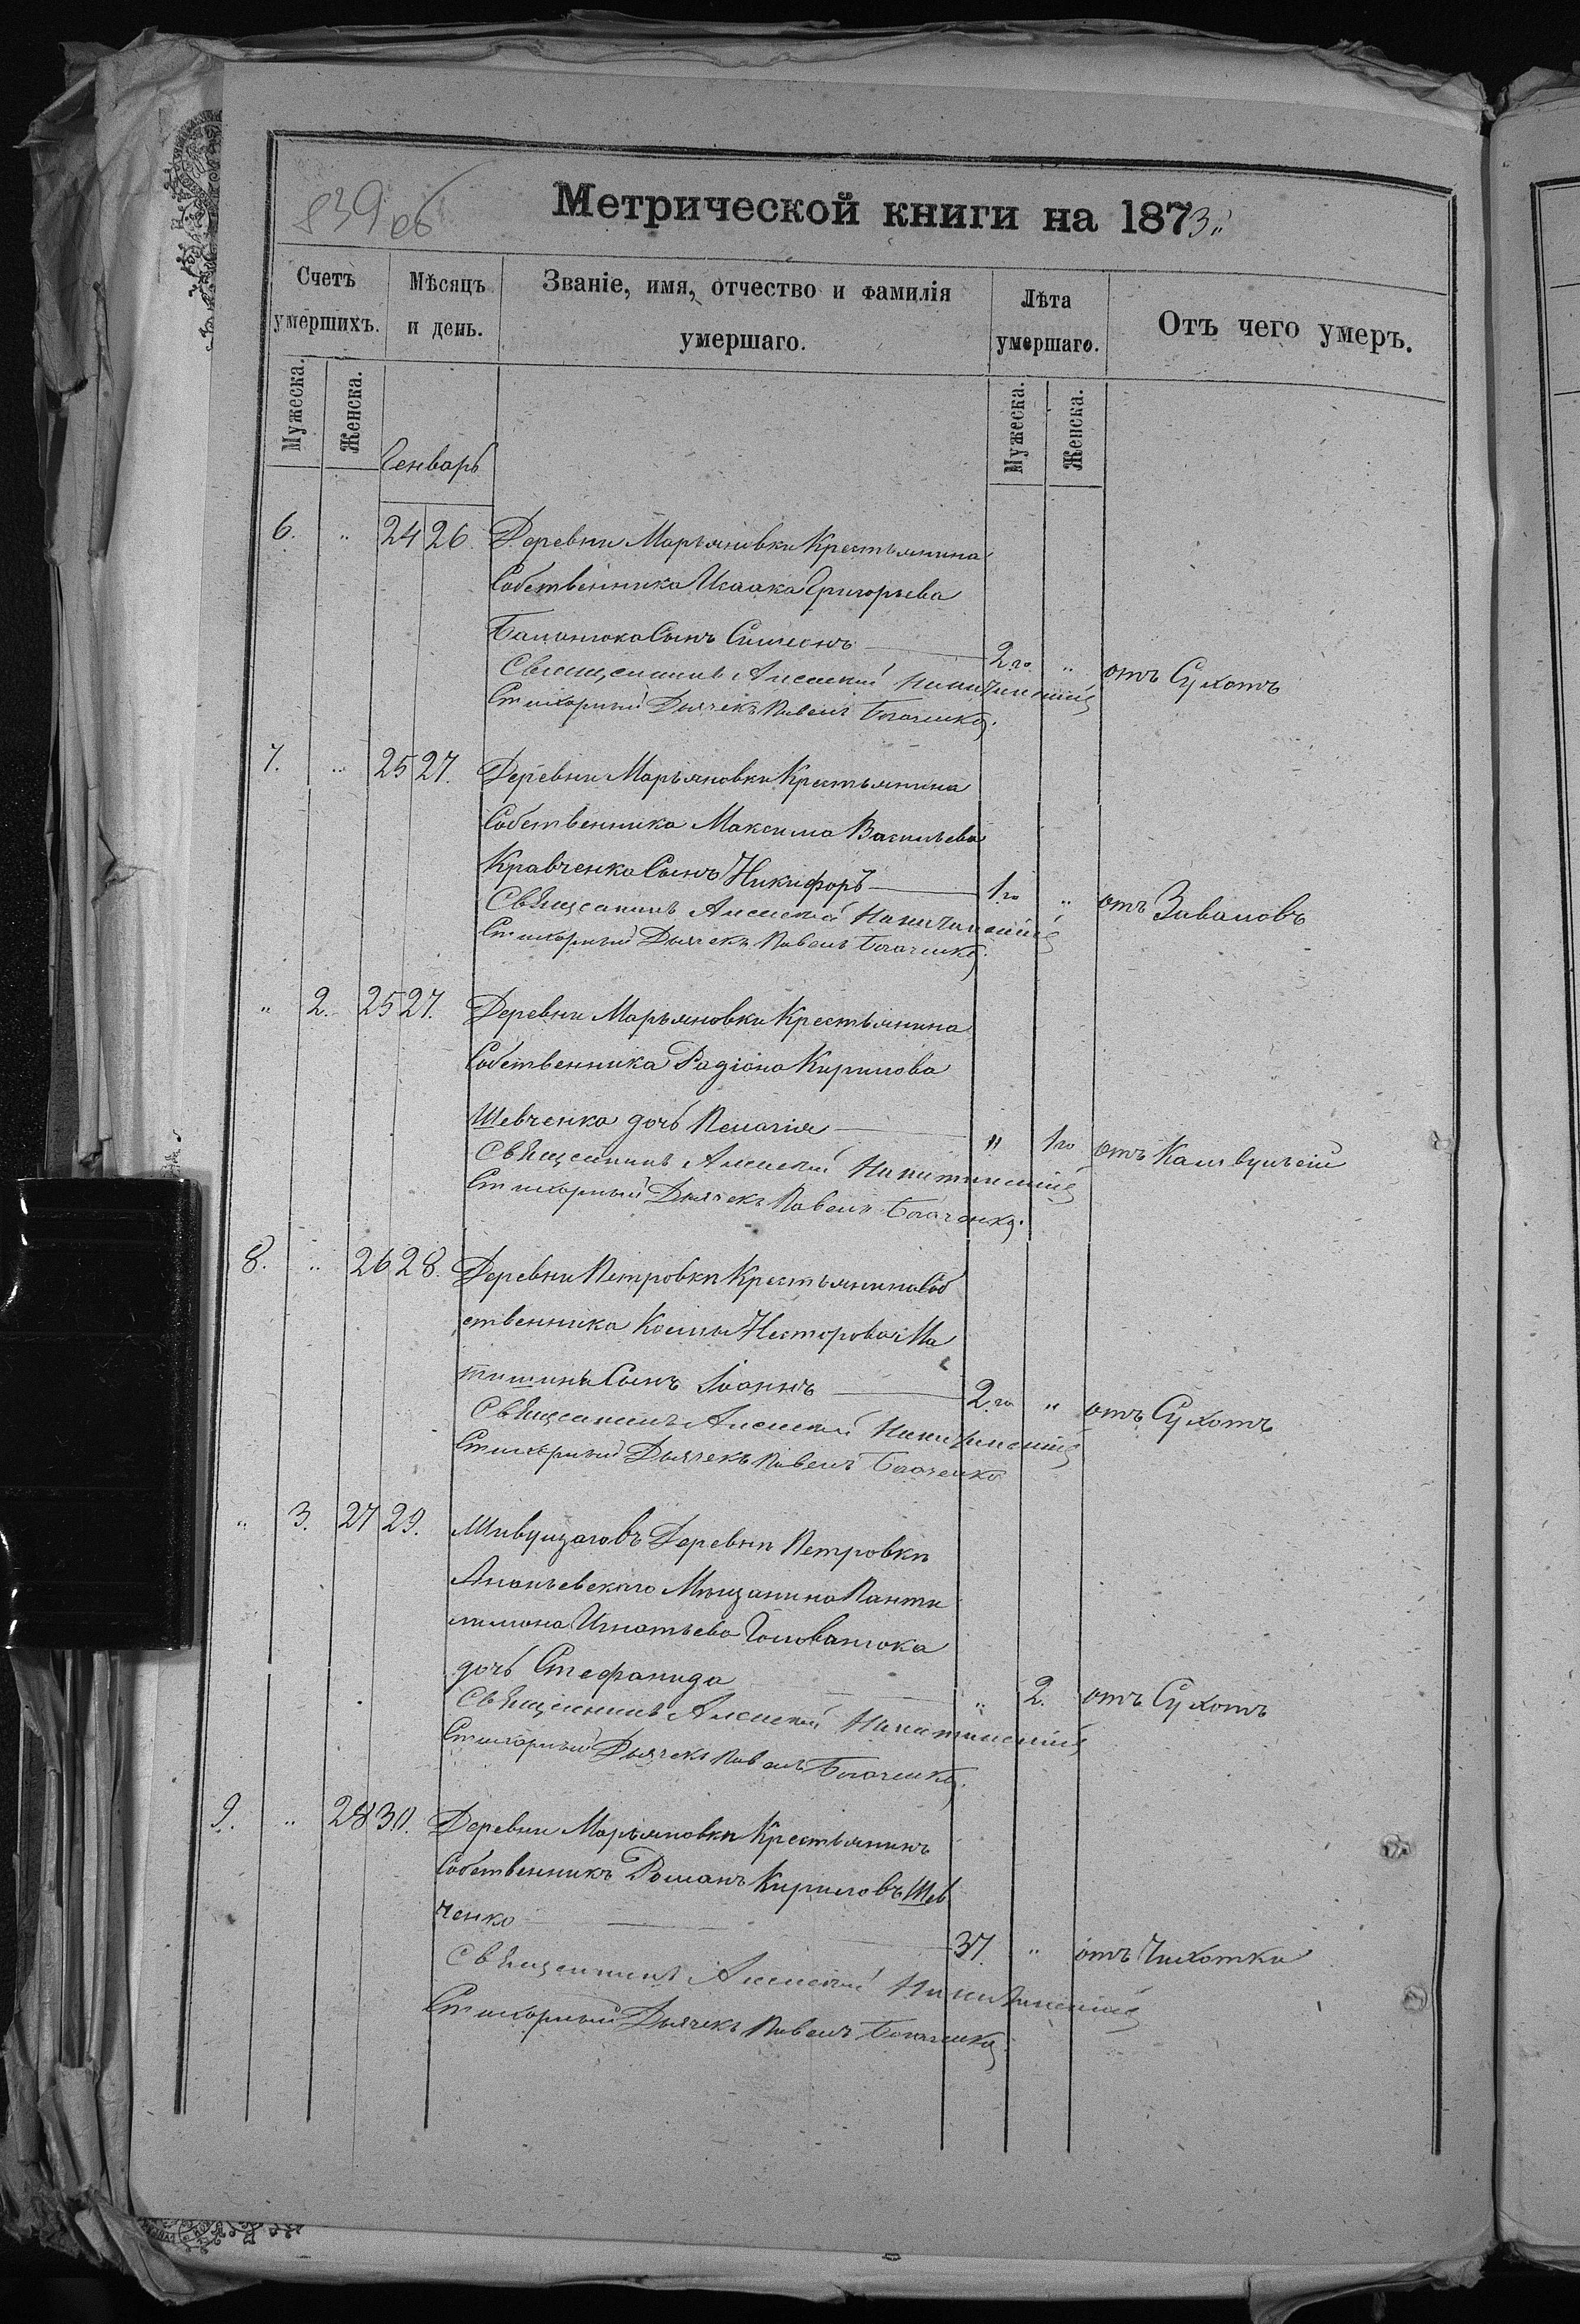 839 об
Метрической книги на 1873
Счетъ умершихъ.
Мѣсяцъ и день.
Званіе, имя, отчество и фамилія умершаго.
Лѣта умершаго.
Отъ чего умеръ.
Мужеска.
Женска.
Мужеска.
Женска.
Генварь
6. " 24 26. Деревни Марьяновки Крестьянина
Собственника Исаака Григорьева
Сынъ Симеонъ 2 го " отъ Сухотъ
Священникъ Алексѣй
Стихарный Дьячекъ Павелъ
7. " 25 27. Деревни Марьяновки Крестьянина
Собственника Максима Васильева
Кравченка Сынъ Никифоръ 1 го " отъ Заваловъ
Священникъ Алексѣй
Стихарный Дьячекъ Павелъ
" 2. 25 27. Деревни Марьяновки Крестьянина
Собственника Радіона Кирилова
Шевченка дочь Пелагія " 1 го отъ
Священникъ Алексѣй
Стихарный Дьячекъ Павелъ
8. " 26 28. Деревни Петровки Крестьянина Соб
ственника Косьмы Несторова Ма
Сынъ Іоаннъ 2 го " отъ Сухотъ
Священникъ Алексѣй
Стихарный Дьячекъ Павелъ
" 3. 27 29. Деревни Петровки
Ананьевского Мѣщанина Панти
лимона Игнатьева Голованюка
дочь Стефанида " 2. отъ Сухотъ
Священникъ Алексѣй
Стихарный Дьячекъ Павелъ
9. " 28 30. Деревни Марьяновки Крестьянинъ
Собственникъ Романъ Кириловъ Шев
ченко 37. " отъ Чихотки
Священникъ Алексѣй
Стихарный Дьячекъ Павелъ